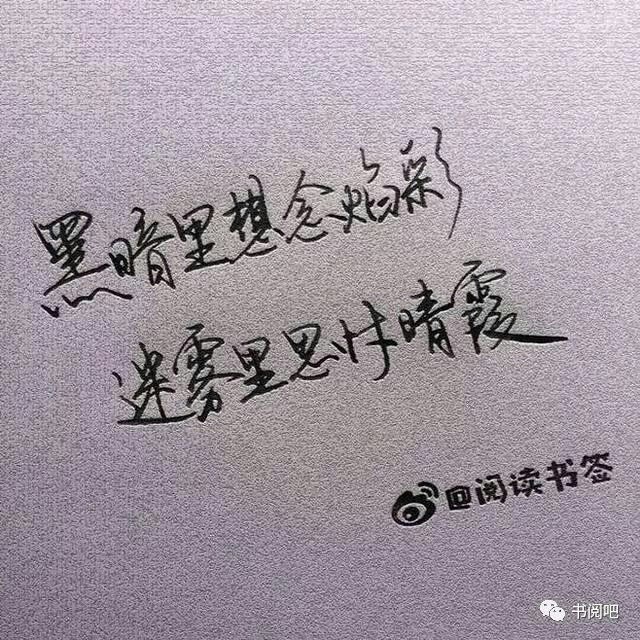 黑暗里想念焰彩
迷雾里思忖晴霞
@阅读书签
书阅吧